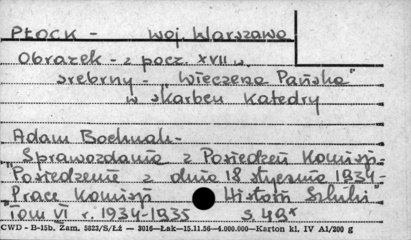 PŁOCK - woj. Warszawa
Obrazek - z pocz. XVII w.
srebrny - "Wieczerza Pańska"
w skarbcu Katedry
Adam Bochnak -
"Sprawozdania z Posiedzeń Komisji -
"Posiedzenie z dnia 18 stycznia 1934 -
Prace Komisji Historii Sztuki"
Tom VI r. 1934-1935 s. 49*
CWD - B-15b. Zam. 5823/S/Łż — 3016—Łak—15.11.56—4.000.000—Karton kl. IV A1/200 g